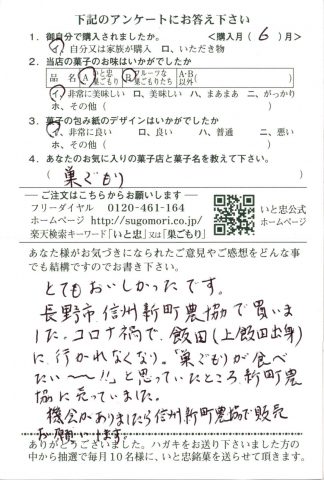 下記のアンケートにお答え下さい
1. 御自分で購入されましたか。 <購入月( 6 )月>
イ、自分又は家族が購入 ロ、いただき物
2. 当店の菓子のお味はいかがでしたか
品 名 A いと忠巣ごもり B フルーツな巣ごもりたち A・B以外( )
イ、非常に美味しい ロ、美味しい ハ、まぁまぁ ニ、がっかり
ホ、その他( )
3. 菓子の包み紙のデザインはいかがでしたか
イ、非常に良い ロ、良い ハ、普通 ニ、悪い
ホ、その他( )
4. あなたのお気に入りの菓子店と菓子名を教えて下さい。
( 巣ごもり )
ご注文はこちらからお願いします
フリーダイヤル 0120-461-164
ホームページ http://sugomori.co.jp/
楽天検索キーワード「いと忠」又は「巣ごもり」
いと忠公式
ホームページ
あなた様がお気づきになられたご意見やご感想をどんな事
でも結構ですのでお書き下さい。
とてもおいしかったです。
長野市信州新町農協で買いま
した。コロナ禍で、飯田(上飯田出身)
に行かれなくなり。「巣ごもりが食べ
たい〜〜!!」と思っていたところ、新町農
協に売っていました。
機会がありましたら信州新町農協で販売
お願いします。
ありがとうございました。ハガキをお送り下さいました方の
中から抽選で毎月10名様に、いと忠銘菓を送らせて頂きます。